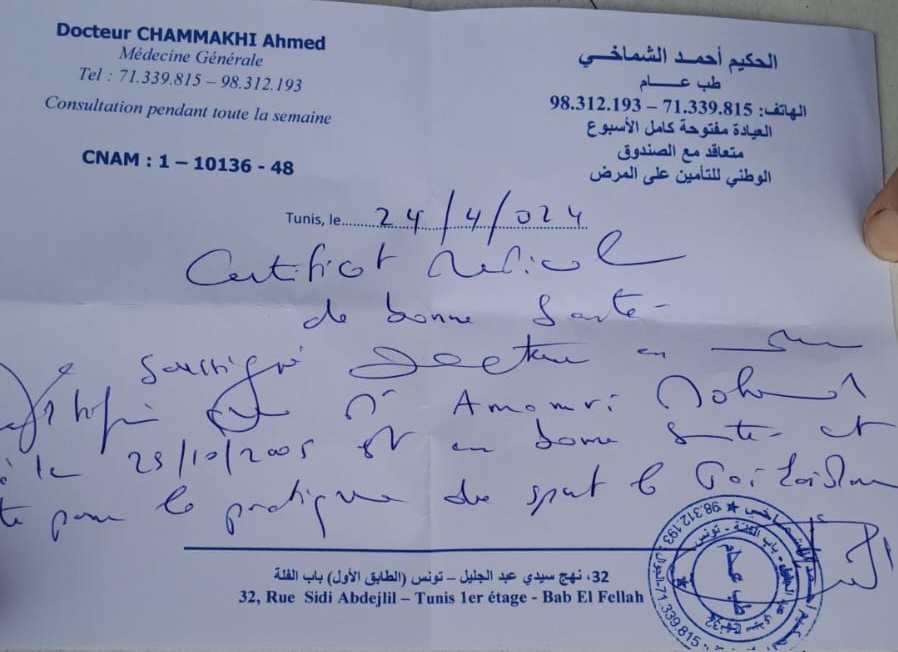 Docteur CHAMMAKHI Ahmed
Médecine Générale
Tel : 71.339.815 – 98.312.193
Consultation pendant toute la semaine
CNAM : 1 – 10136 - 48
الحكيم أحمد الشماخي
طب عـــام
الهاتف: 71.339.815 – 98.312.193
العيادة مفتوحة كامل الأسبوع
متعاقد مع الصندوق
الوطني للتأمين على المرض
Tunis, le 24/4/024
Certificat Medical
de bonne Santé
soussigné Docteur en
que Mr Amamri Mohamed
le 25/10/2005 est en bonne Santé et
te pour la pratique de sport le
32، نهج سيدي عبد الجليل – تونس (الطابق الأول) باب الفلة
32, Rue Sidi Abdejlil – Tunis 1er étage - Bab El Fellah
طب عام
98.312.193
71.339.815